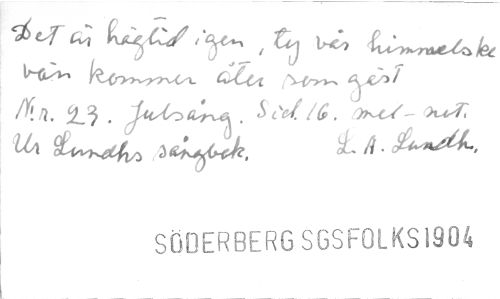 Det är högtid igen, ty vår himmelske
vän kommer åter som gäst
N:r. 23. Julsång. Sid. 16. mel-not.
Ur Lundhs sångbok. L. A. Lundh.
SÖDERBERG SGSFOLKS1904